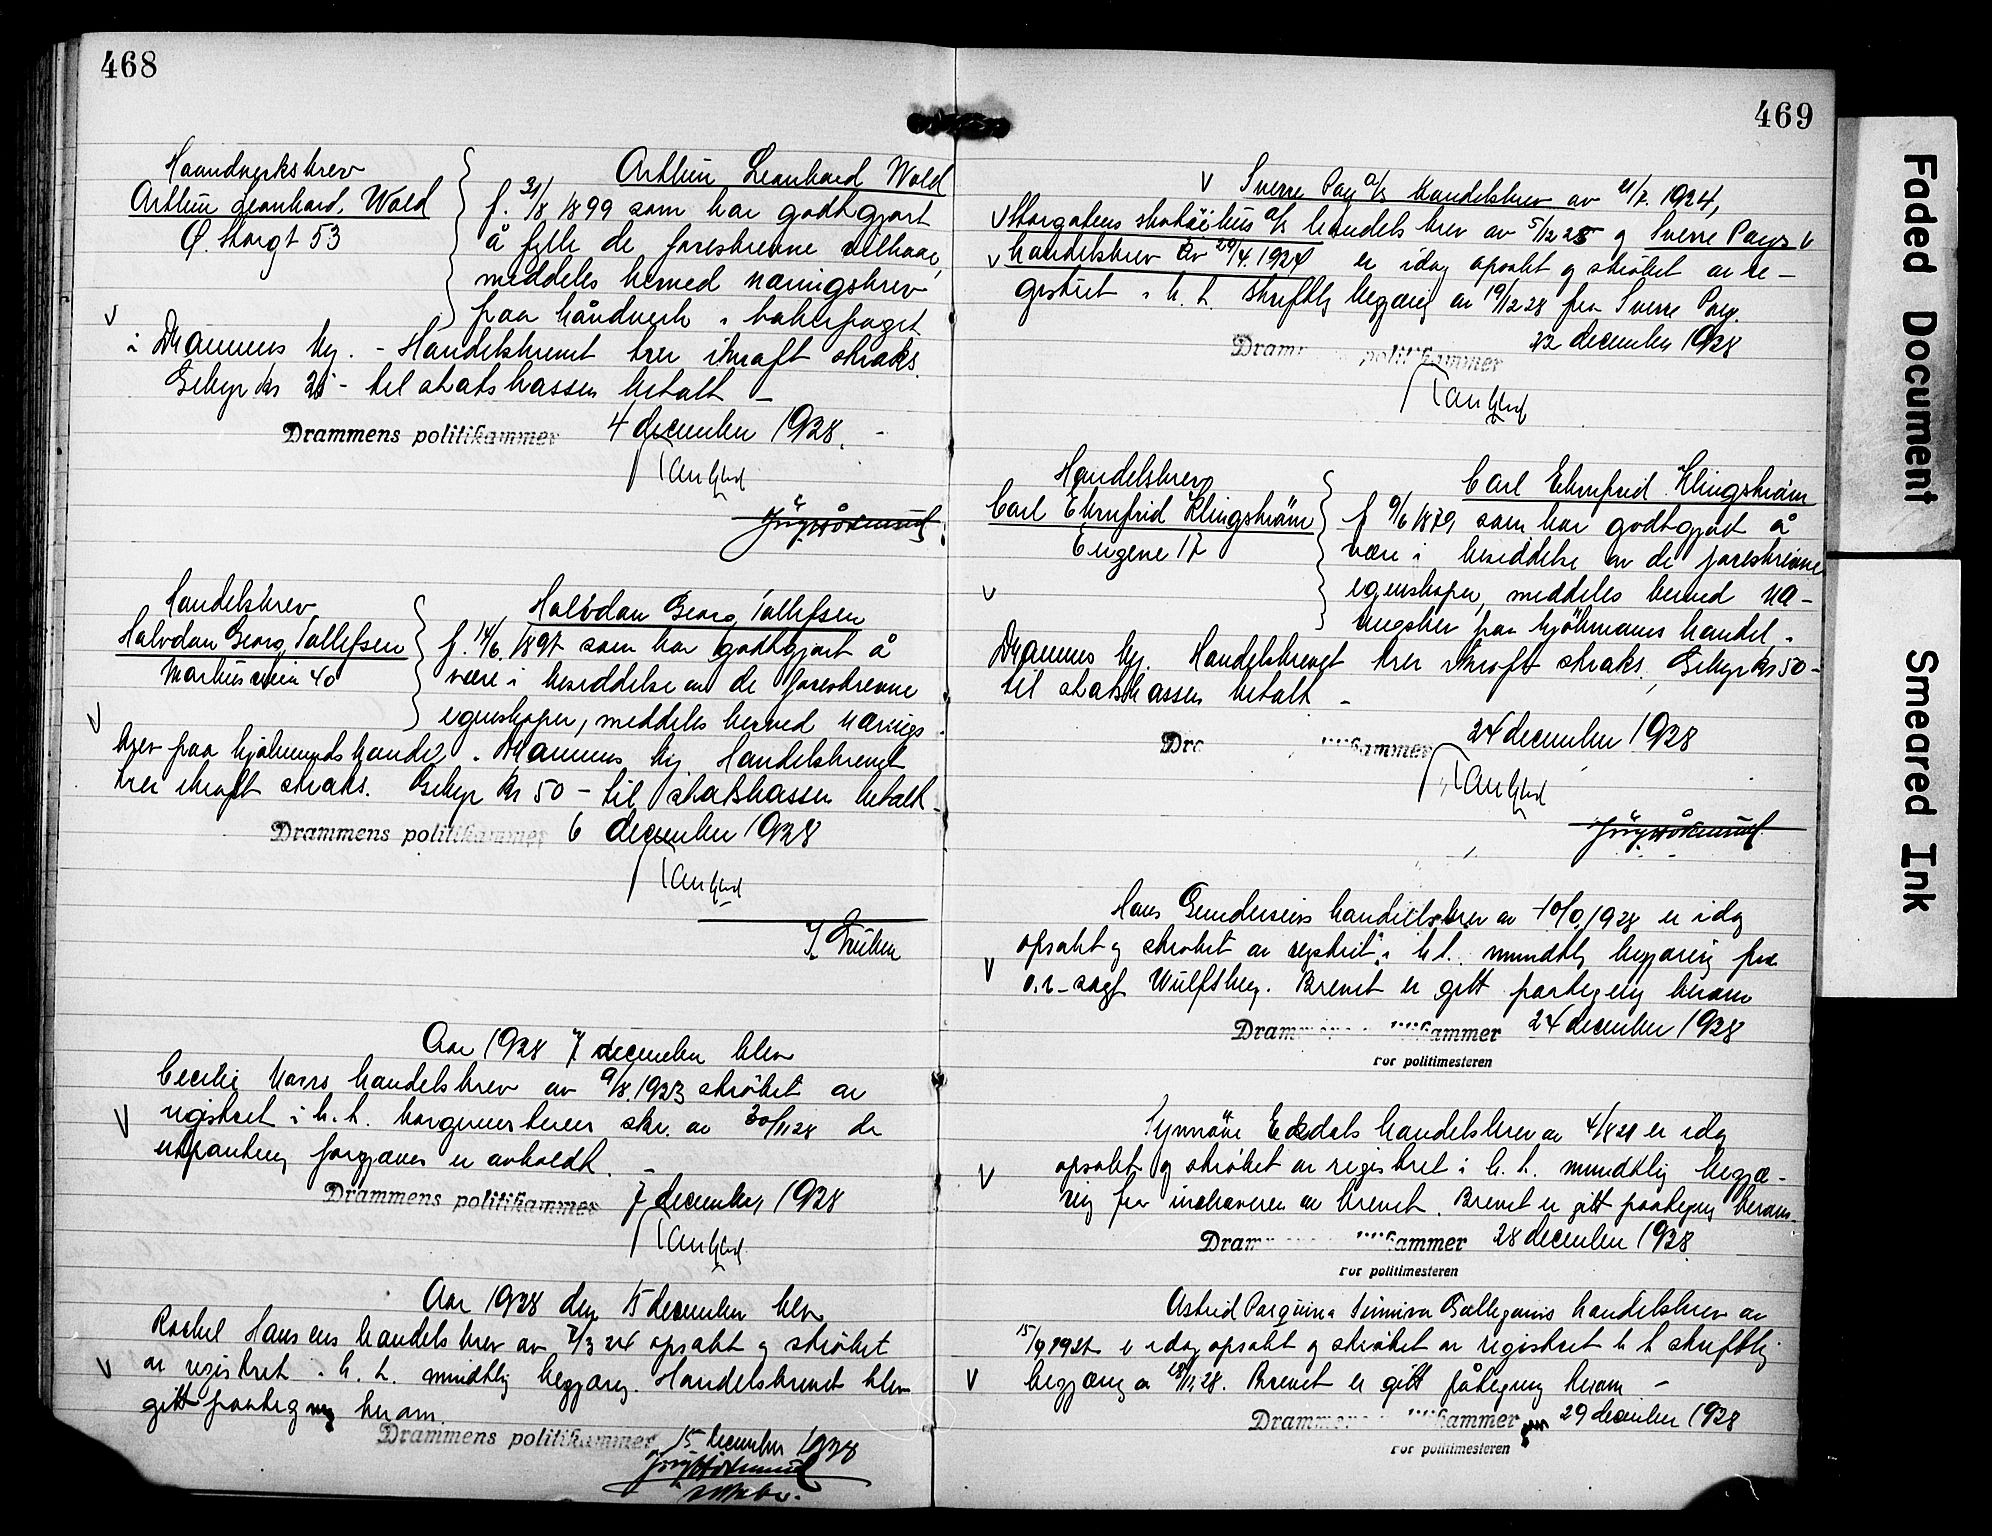 468
Haandverksbrev
Arthur Leonhard Wold
Ø. Storgt 53
Arthur Leonhard Wold
f. 31/8 1899 som har godtgjort
å fylle de foreskrevne vilkaar,
meddeles herved næringsbrev
paa håndverk i bakerfaget
i Drammens by. - Handelsbrevet trer ikraft straks.
Gebyr kr 25 - til statskassen betalt -
Drammens politikammer 4 december 1928. -
Handelsbrev
Halvdan Georg Tollefsen
Halvdan Georg Tollefsen
f. 14/6. 1897 som har godtgjort å
være i besiddelse av de foreskrevne
egenskaper, meddeles herved nærings
brev paa kjøbmandshandel i Drammens by Handelsbrevet
trer ikraft straks. Gebyr kr 50 - til statskassen betalt -
Drammens politikammer 6 december 1928
Aar 1928 7 december blev
Cecilie handelsbrev av 9/8.1923 strøket av
registret i h. t. skr. av 30/11 28 da
utpanting forgjæves er avholdt. -
Drammens politikammer 7 december 1928
Aar 1928 den 15 december blev
Rachel Hansens handelsbrev av 7/3 24 opsakt og strøket
av registret i h. t. mundtlig begjæring. Handelsbrevet blev
gitt paategning herom.
Drammens politikammer 15 december 1928
469
Sverre Pay a/s handelsbrev av 21/7. 1924,
Storgatens skotøihus a/s handelsbrev av 5/12 25 og Sverre Pays
handelsbrev av 29/4. 1924 er idag opsakt og strøket av re-
gistret i h. t. skriftlig begjæring av 19/12 28 fra Sverre Pay.
Drammens politikammer 22 december 1928
Handelsbrev
Carl Ehrnfrid Klingström
Engene 17
Carl Ehrnfrid Klingström
f 9/6 1879 som har godtgjort å
være i besiddelse av de foreskrevne
egenskaper, meddeles herved næ-
ringsbrev paa kjøbmannshandel i
Drammens by. Handelsbrevet trer ikraft straks. Gebyr kr 50 -
til statskassen betalt -
24 december 1928
Hans Gundersens handelsbrev av 1928 er idag
opsakt og strøket av registret i h t. mundtlig begjæring fra
o.r.-sagf Wulfsberg. Brevet er gitt paategning herom
Drammens politikammer 24 december 1928
For politimesteren
Synnøve Eksdals handelsbrev av 4/8 28 er idag
opsakt og strøket av registret i h. t. mundtlig begjæ-
ring fra inehaveren av brevet. Brevet er gitt paategning herom.
Drammens politikammer 28 december 1928
For politimesteren
Astrid handelsbrev av
15/9 1921 er idag opsakt og strøket av registret h t skriftlig
begjæring av 28. Brevet er gitt påtegning herom -
Drammens politikammer 29 december 1928
For politimesteren
Faded Document
Smeared Ink